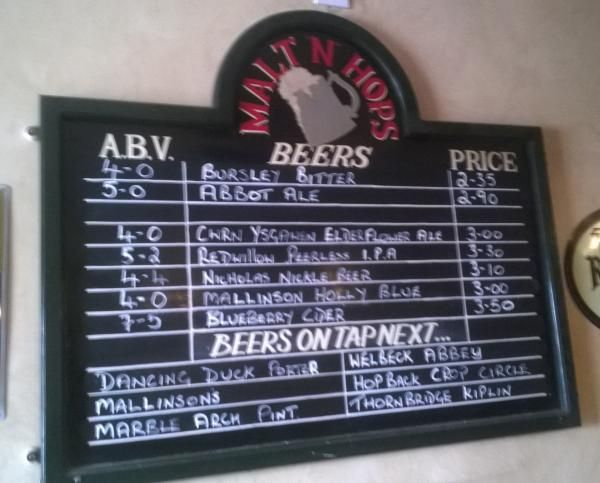 MALT N HOPS
A.B.V. BEERS PRICE
4-0 BURSLEY BITTER 2-35
5-0 ABBOT ALE 2-90
4-0 CWRN YSGAWEN ELDERFLOWER ALE 3-00
5-2 REDWILLOW PEERLESS I.P.A 3-30
4-4 NICHOLAS NICKLE BEER 3-10
4-0 MALLINSON HOLLY BLUE 3-00
7-5 BLUEBERRY CIDER 3-50
BEERS ON TAP NEXT...
DANCING DUCK PORTER WELBECK ABBEY
MALLINSON'S HOPBACK CROP CIRCLE
MARBLE ARCH PINT THORNBRIDGE KIPLIN